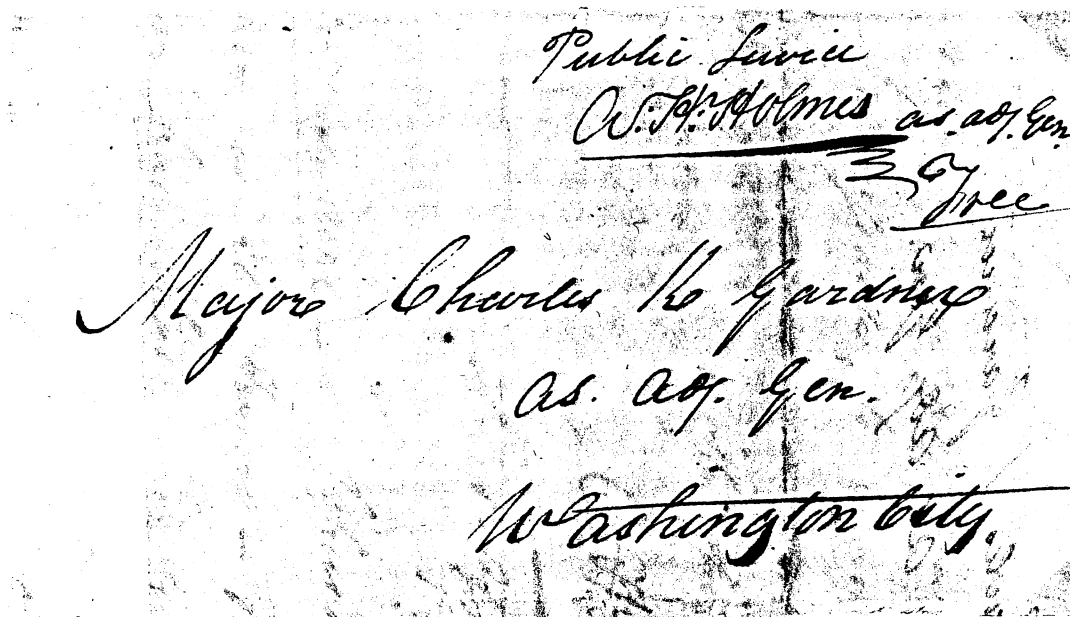 Public Service
A. H. Holmes as. adj. Gen
Free
Major Charles K Gardner
as. adj. Gen.
Washington City.